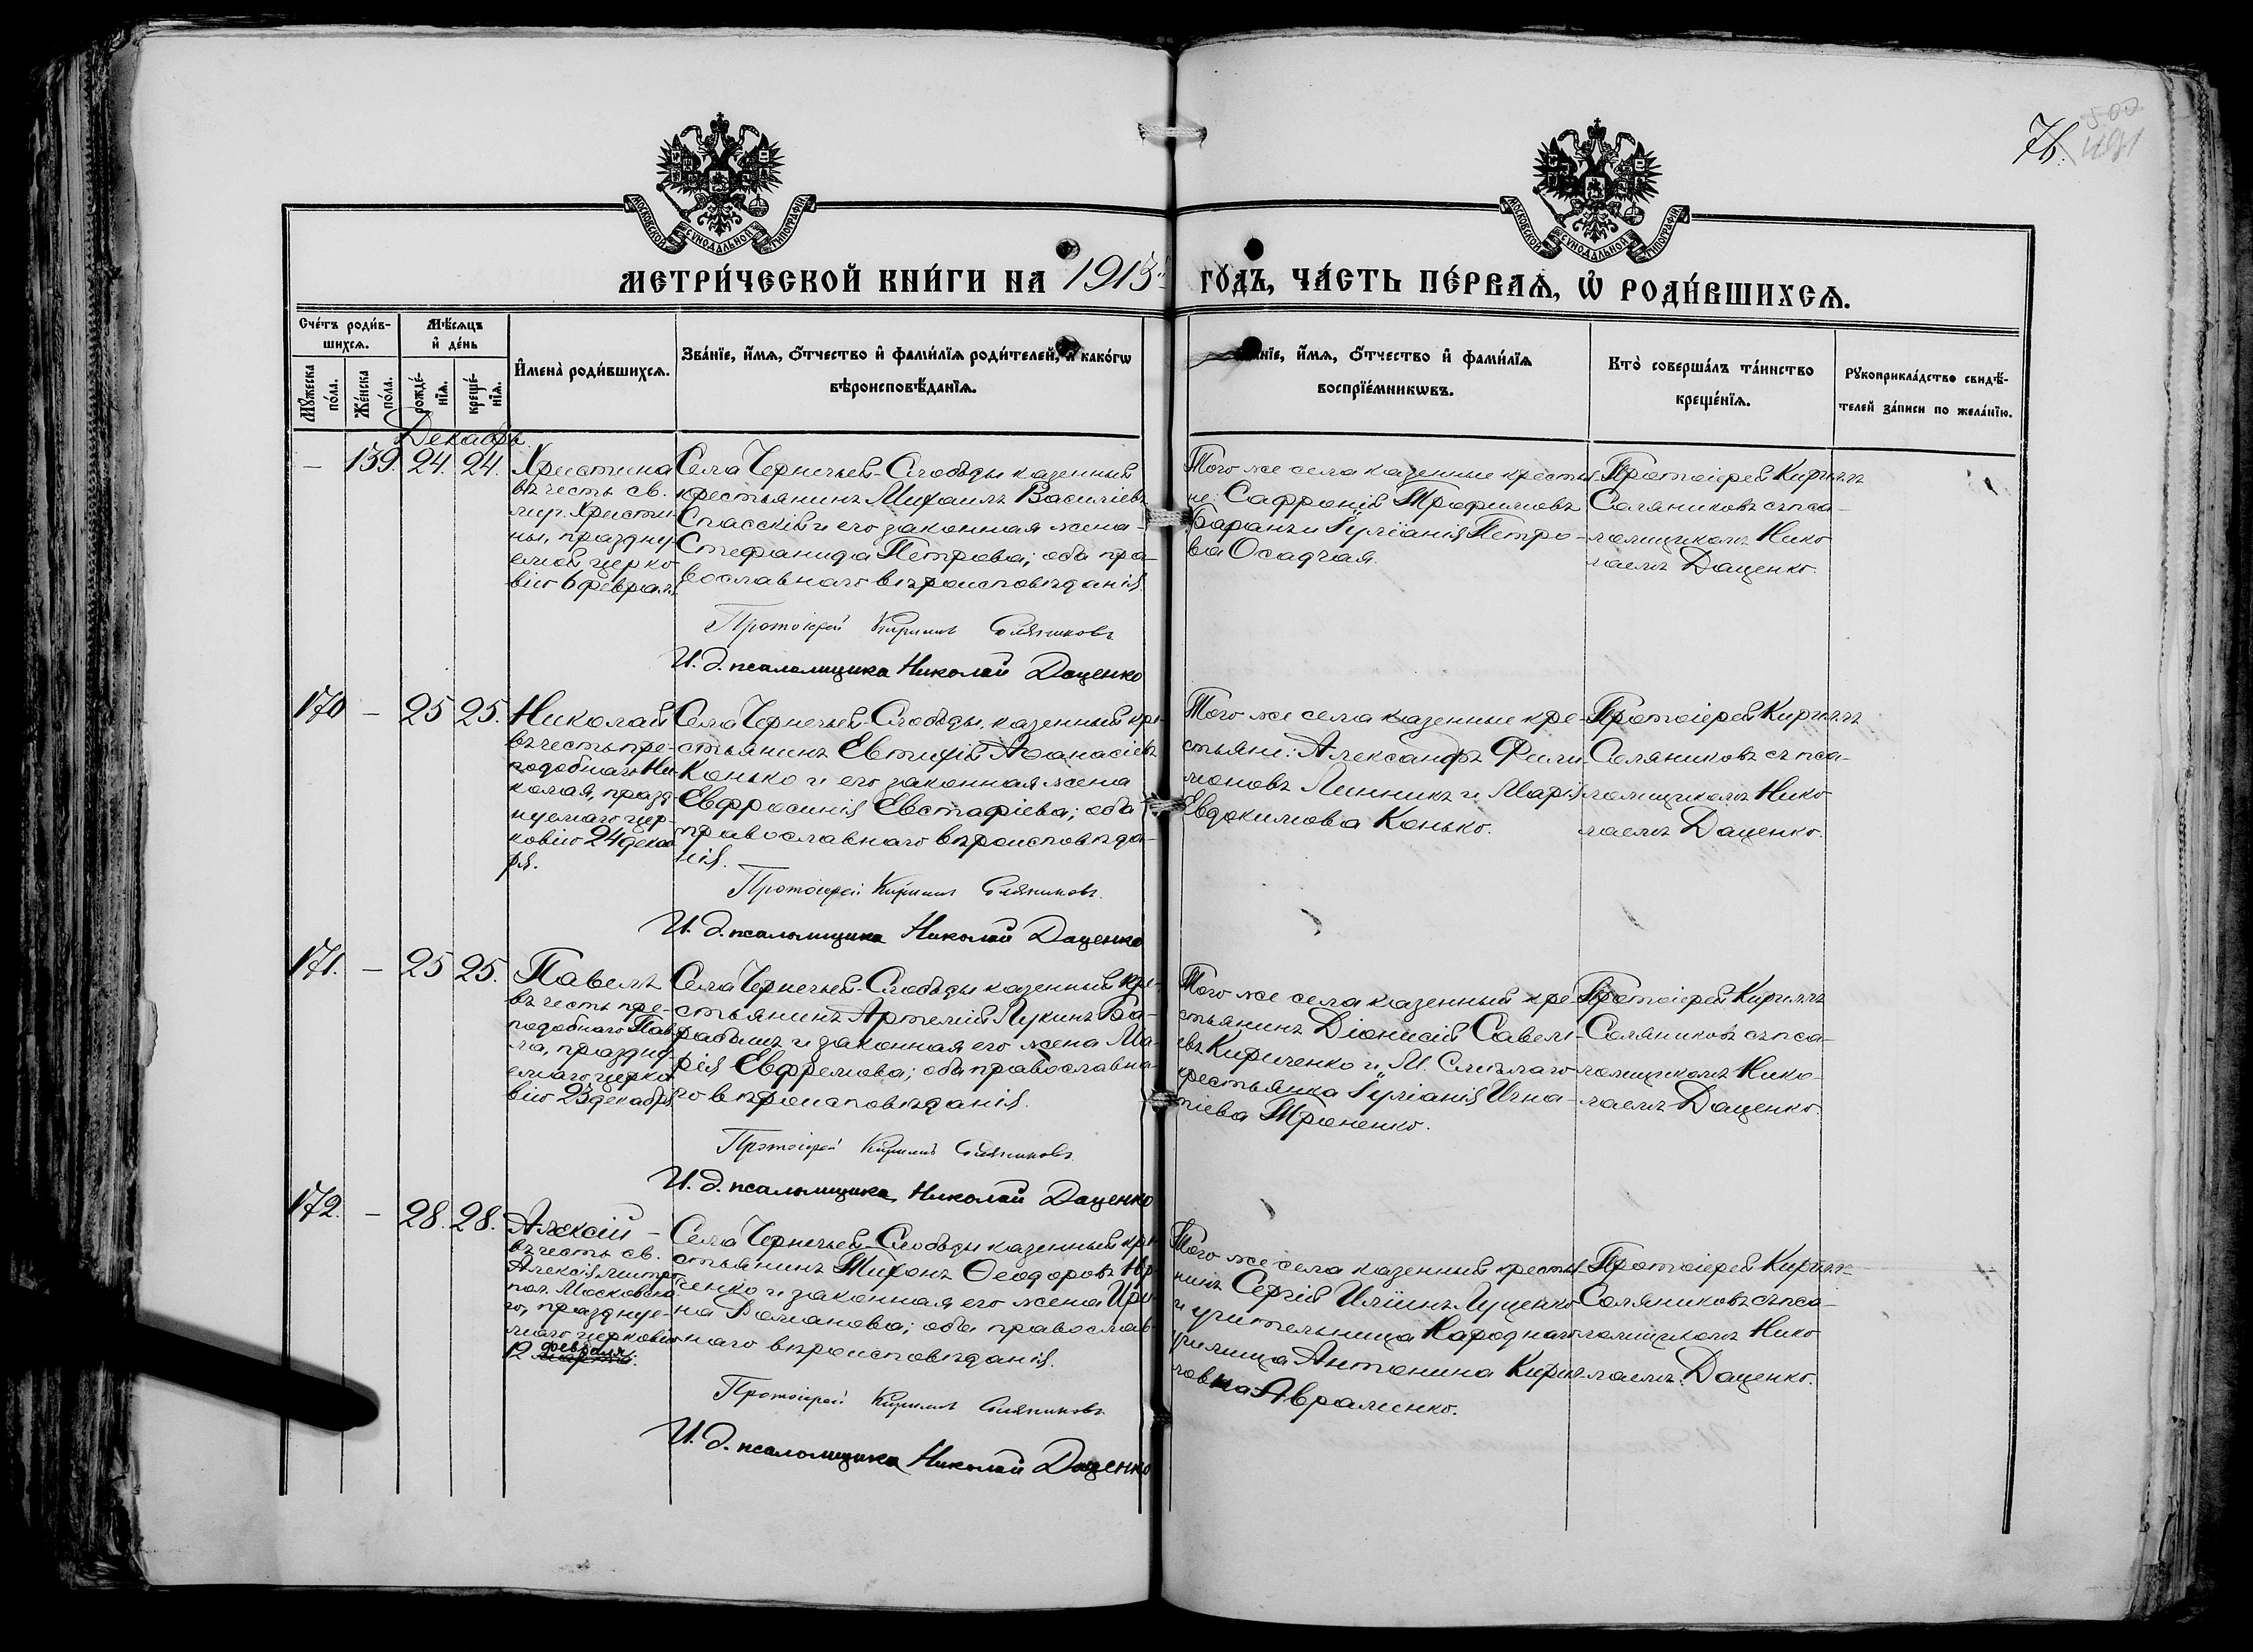 76.
500
491
МОСКОВСКОЙ СѴНОДАЛЬНОЙ ТИПОГРАФІИ
МОСКОВСКОЙ СѴНОДАЛЬНОЙ ТИПОГРАФІИ
МЕТРИ́ЧЕСКОЙ КНИ́ГИ НА 1913й ГО́ДЪ, ЧА́СТЬ ПЕ́РВАѦ, Ѡ҆ РОДИ́ВШИХСѦ.
Сче́тъ роди́в-
шихсѧ.
Мѣ́сѧцъ
и҆ де́нь
Мꙋ́жеска
по́ла.
Же́нска
по́ла.
рожде́-
нїѧ.
креще́-
нїѧ.
И҆мена̀ роди́вшихсѧ.
Зва́нїе, и҆́мѧ, ѻ҆́тчество и҆ фами́лїѧ роди́телей, и҆ како́гѡ
вѣроисповѣ́данїѧ.
и҆́мѧ, ѻ҆́тчество и҆ фами́лїѧ
воспрїе́мникѡвъ.
Кто̀ соверша́лъ та́инство
креще́нїѧ.
Рꙋкоприкла́дство свидѣ́-
телей за́писи по жела́нїю.
Декабрь.
— 139. 24. 24.
Христина
въ честь св.
муч. Христи-
ны, праздну-
емой церко-
вію 6 февраля.
Села Чернечьей-Слободы казенный
крестьянинъ Михаилъ Васильевъ
Спасскій и его законная жена
Стефанида Петрова; оба пра-
вославнаго вѣроисповѣданія.
Протоіерей Кириллъ Соляниковъ.
И. д. псаломщика Николай Даценко
Того же села казенные крестья-
не: Сафроній Трофимовъ
Баранъ и Іуліанія Петро-
ва Осадчая.
Протоіерей Кириллъ
Соляниковъ съ пса-
ломщикомъ Нико-
лаемъ Даценко.
170 — 25 25.
Николай
въ честь пре-
подобнаго Ни-
колая, празд-
нуемаго цер-
ковію 24 декаб-
ря.
Села Чернечьей-Слободы, казенный кре-
стьянинъ Евтихій Аѳанасіевъ
Конько и его законная жена
Евфросинія Евстафіева; оба
православнаго вѣроисповѣда-
нія.
Протоіерей Кириллъ Соляниковъ.
И. д. псаломщика Николай Даценко
Того же села казенные кре-
стьяне: Александръ Фили-
моновъ Линникъ и Марія
Евдокимова Конько.
Протоіерей Кириллъ
Соляниковъ съ пса-
ломщикомъ Нико-
лаемъ Даценко.
171. — 25 25.
Павелъ
въ честь пре-
подобнаго Пав-
ла, праздну-
емаго церко-
вію 23 декабря.
Села Чернечьей-Слободы казенный кре-
стьянинъ Артемій Лукинъ Ба-
рабашъ и законная его жена Ма-
рія Евфремова; оба православна-
го вѣроисповѣданія.
Протоіерей Кириллъ Соляниковъ.
И. д. псаломщика Николай Даценко
Того же села казенный кре-
стьянинъ Діонисій Савель-
евъ Кириченко и М. Смѣлаго
крестьянка Іуліанія Игна-
тіева Троненко.
Протоіерей Кириллъ
Соляниковъ съ пса-
ломщикомъ Нико-
лаемъ Даценко.
172. — 28. 28.
Алексій
въ честь св.
Алексія митро-
пол. Московска-
го, празднуе-
маго церковію
12 февраля.
Села Чернечьей-Слободы казенный кре-
стьянинъ Тихонъ Ѳеодоровъ
ценко и законная его жена Ири-
на Романова; оба православ-
наго вѣроисповѣданія.
Протоіерей Кириллъ Соляниковъ
И. д. псаломщика Николай Даценко
Того же села казенный крестья-
нинъ Сергій Иліинъ Луценко
и учительница Народнаго
училища Антонина Кирил-
ловна Авраменко.
Протоіерей Кириллъ
Соляниковъ съ пса-
ломщикомъ Нико-
лаемъ Даценко.